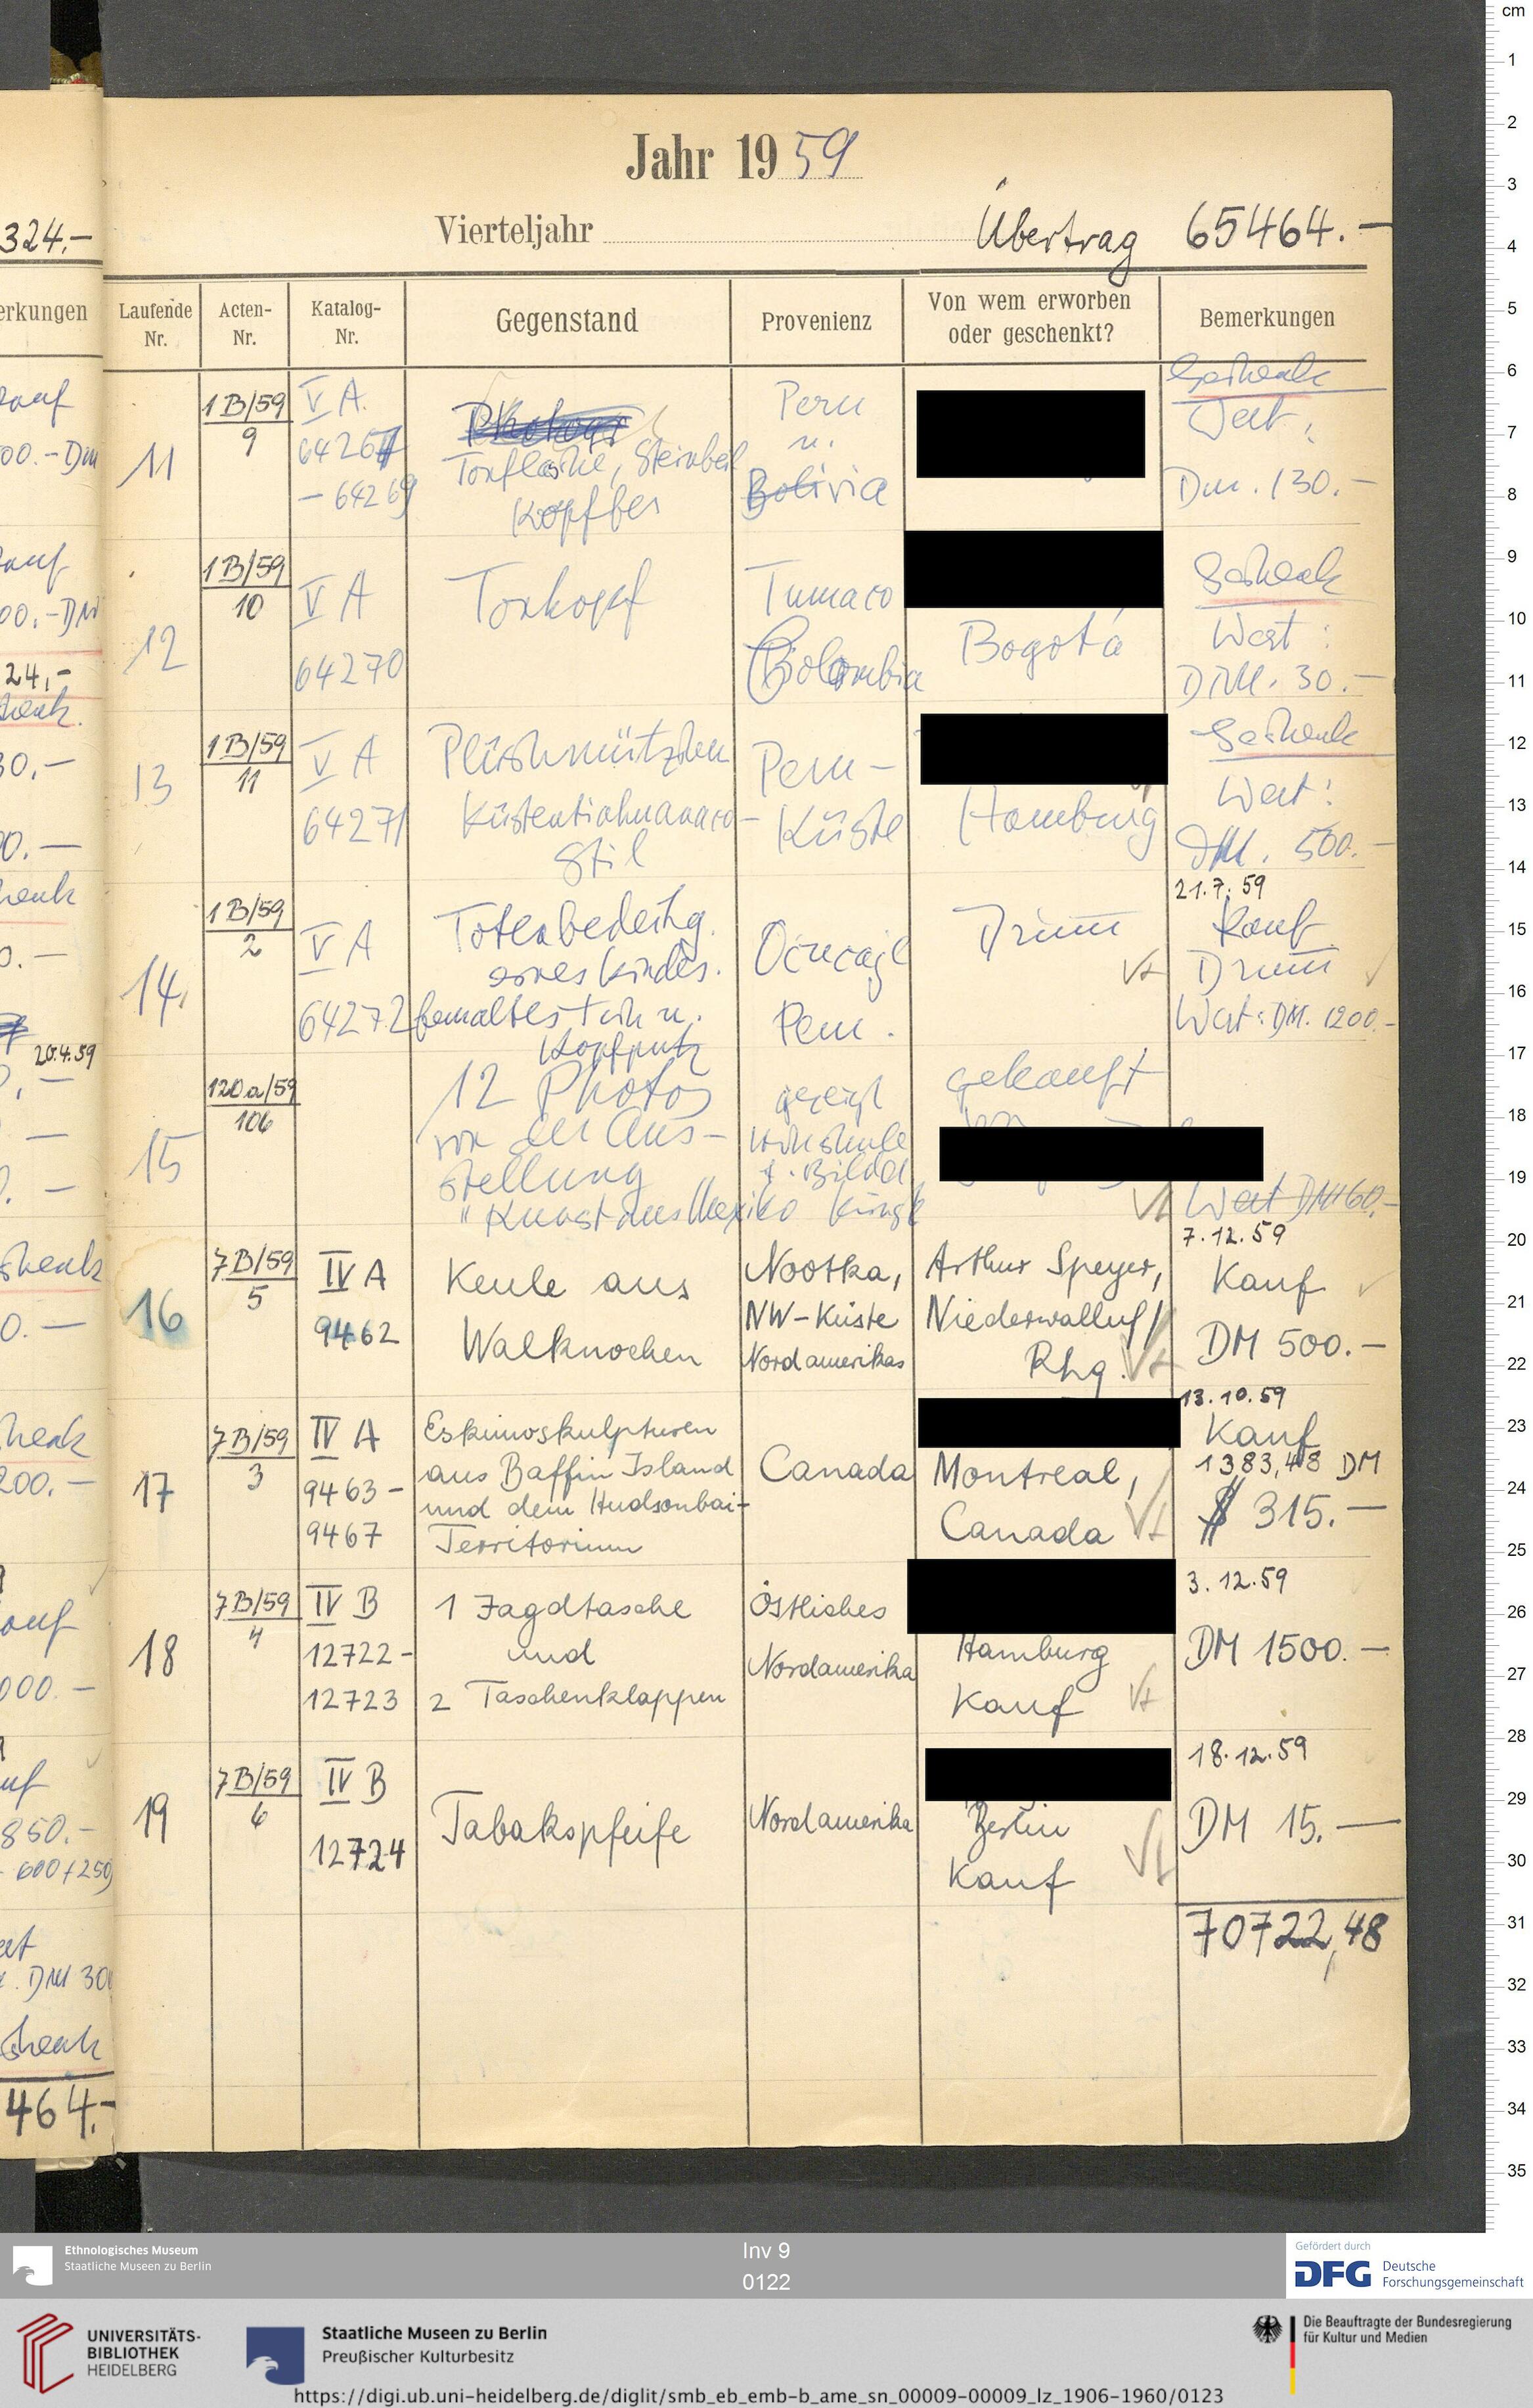 Jahr 1959
Vierteljahr Übertrag 65464.-
324.-
erkungen
Laufende Nr.
Acten-Nr.
Katalog-Nr.
Gegenstand
Provenienz
Von wem erworben oder geschenkt?
Bemerkungen
11
1B/59
9
V A.
64267
- 64269
Tonflasche, Steinbeil
Kopfbes
Peru
u.
Bolivia
Geschenk
Wert:
Dm. 130.-
12
1B/59
10
V A
64270
Tonkopf
Tumaco
Colombia
Bogotá
Geschenk
Wert:
DM. 30.-
13
1B/59
11
V A
64271
Plüschmützchen
Küstentiahuanaco-
Stil
Peru-
Küste
Hamburg
Geschenk
Wert:
DM. 500.-
14.
1B/59
2
V A
64272
eines Kindes.
bemaltes Tuch u.
Kopfputz
Ocucaje
Peru.
21.7.59
Kauf
Wert: DM. 1200.-
15
120a/59
106
12 Photos
von der Aus-
stellung
"Kunst aus Mexiko
gezeigt
Hochschule
f. Bild.
Künste
gekauft
von
Wert DM 60.-
16
7B/59
5
IV A
9462
Keule aus
Walknochen
Nootka,
NW-Küste
Nordamerikas
Arthur Speyer,
Niederwalluf/
Rhg.
7.12.59
Kauf
DM 500.-
17
7B/59
3
IV A
9463-
9467
Eskimoskulpturen
aus Baffin Island
und dem Hudsonbai-
Territorium
Canada
Montreal,
Canada
13.10.59
Kauf
1383,48 DM
$ 315.-
18
7B/59
4
IV B
12722-
12723
1 Jagdtasche
und
2 Taschenklappen
Östliches
Nordamerika
Hamburg
Kauf
3.12.59
DM 1500.-
19
7B/59
6
IV B
12724
Tabakspfeife
Nordamerika
Berlin
Kauf
18.12.59
DM 15.-
70722,48
20.4.59
464.-
cm
1
2
3
4
5
6
7
8
9
10
11
12
13
14
15
16
17
18
19
20
21
22
23
24
25
26
27
28
29
30
31
32
33
34
35
Ethnologisches Museum
Staatliche Museen zu Berlin
Inv 9
0122
Gefördert durch
DFG Deutsche
Forschungsgemeinschaft
UNIVERSITÄTS-
BIBLIOTHEK
HEIDELBERG
Staatliche Museen zu Berlin
Preußischer Kulturbesitz
Die Beauftragte der Bundesregierung
für Kultur und Medien
https://digi.ub.uni-heidelberg.de/diglit/smb_eb_emb-b_ame_sn_00009-00009_lz_1906-1960/0123